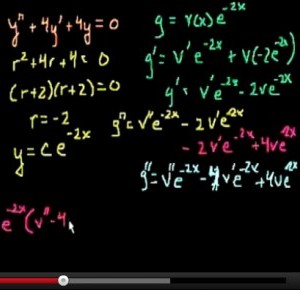 y'' + 4y' + 4y = 0
r² + 4r + 4 = 0
(r+2)(r+2) = 0
r = -2
y = Ce^-2x
g = v(x)e^-2x
g' = v'e^-2x + v(-2e^-2x)
g' = v'e^-2x - 2ve^-2x
g'' = v''e^-2x - 2v'e^-2x
- 2v'e^-2x + 4ve^-2x
g'' = v''e^-2x - 4v'e^-2x + 4ve^-2x
e^-2x(v'' - 4